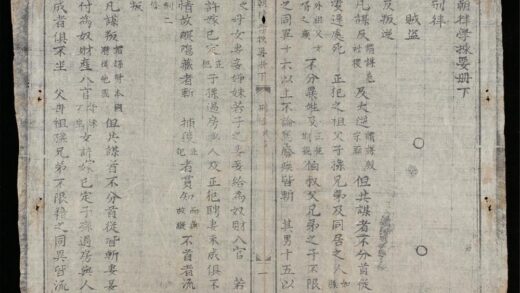 朝律學撮要册下
刑律
賊盜
反叛逆
凡謀反 及大逆 但共謀者不分首從
凌遲處死 正犯之祖父子孫兄弟及同居之人
不分異姓及 正犯 伯叔父兄弟之子不限
之同異十六以上不論篤廢疾皆斬 其男十五以
一
之母女妻妾姊妹若子之妻妾給為奴財入官 若
許嫁已定 子孫過房與人及正犯聘妻未成俱不
情故縱隱藏者斬 捕獲 者賞 知而 不首者流
叛
凡謀叛 謂謀背本國 但共謀者不分首從皆斬妻妾
付為奴財產入官 女許嫁已定子孫過房與人
成者俱不坐 父母祖孫兄弟不限籍之同異皆流